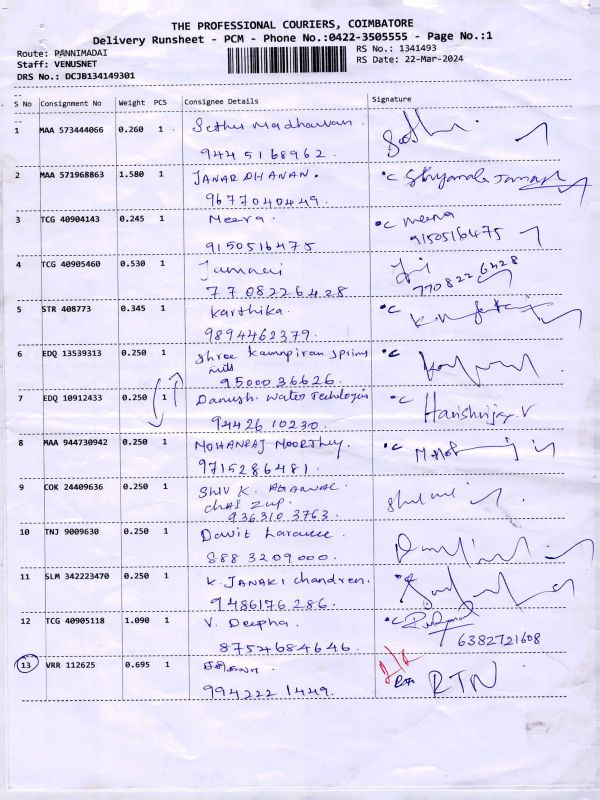 THE PROFESSIONAL COURIERS, COIMBATORE
Delivery Runsheet - PCM - Phone No.:0422-3505555 - Page No.:1
Route: PANNIMADAI
Staff: VENUSNET
DRS No.: DCJB134149301
RS No.: 1341493
RS Date: 22-Mar-2024
S No Consignment No Weight PCS Consignee Details Signature
1 MAA 573444066 0.260 1 Sethu Madhavan
9445168962.
2 MAA 571968863 1.580 1 JANARDHANAN. °C Shyamala
9677040449.
3 TCG 40904143 0.245 1 Meera. °C meena
9150516475 9150516475
4 TCG 40905460 0.530 1
7708226428 7708226428
5 STR 408773 0.345 1 Karthika. °C
9894462379.
6 EDQ 13539313 0.250 1 Shree °C
mills
9500036626.
7 EDQ 10912433 0.250 1 Danush Water °C
9442610230.
8 MAA 944730942 0.250 1 MOHANRAJ MOORTHY. °C
9715286481.
9 COK 24409636 0.250 1 SHIV K. AGARWAL
936310 3763.
10 TNJ 9009630 0.250 1
8883209000.
11 SLM 342223470 0.250 1 K. JANAKI Chandren.
9486176286.
12 TCG 40905118 1.090 1 V. Deepha. °C
8754684646. 6382721608
13 VRR 112625 0.695 1 RTN
9942221449.